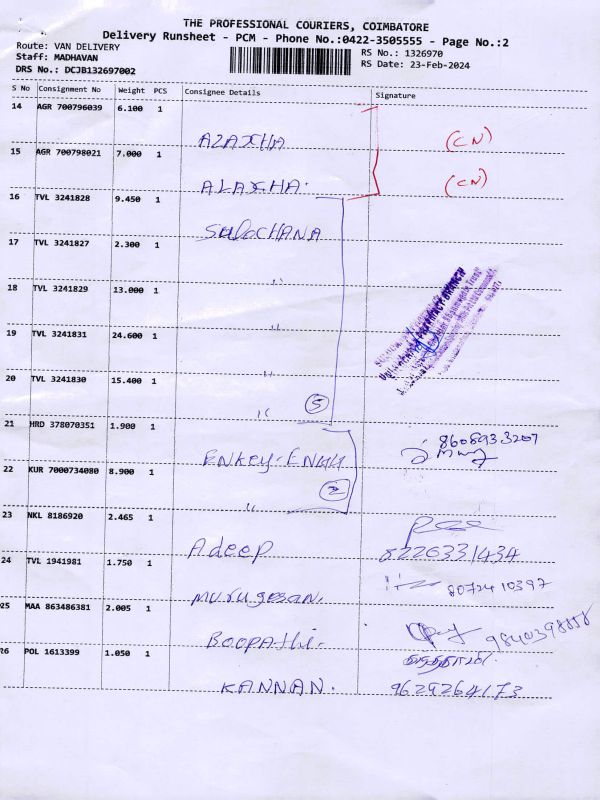 THE PROFESSIONAL COURIERS, COIMBATORE
Delivery Runsheet - PCM - Phone No.:0422-3505555 - Page No.:2
Route: VAN DELIVERY
RS No.: 1326970
Staff: MADHAVAN
RS Date: 23-Feb-2024
DRS No.: DCJB132697002
S No Consignment No Weight PCS Consignee Details Signature
14 AGR 700796039 6.100 1
(CN)
15 AGR 700798021 7.000 1
ALAXHA.
(CN)
16 TVL 3241828 9.450 1
SuloCHANA
17 TVL 3241827 2.300 1
"
18 TVL 3241829 13.000 1
"
19 TVL 3241831 24.600 1
"
20 TVL 3241830 15.400 1
" 5
21 HRD 378070351 1.900 1
8608933207
22 KUR 7000734080 8.900 1
" 2
23 NKL 8186920 2.465 1
Adeep 8226331434
24 TVL 1941981 1.750 1
Murugesan. 8072410397
25 MAA 863486381 2.005 1
Boopathi. 9840398858
26 POL 1613399 1.050 1
KANNAN. 9629264173